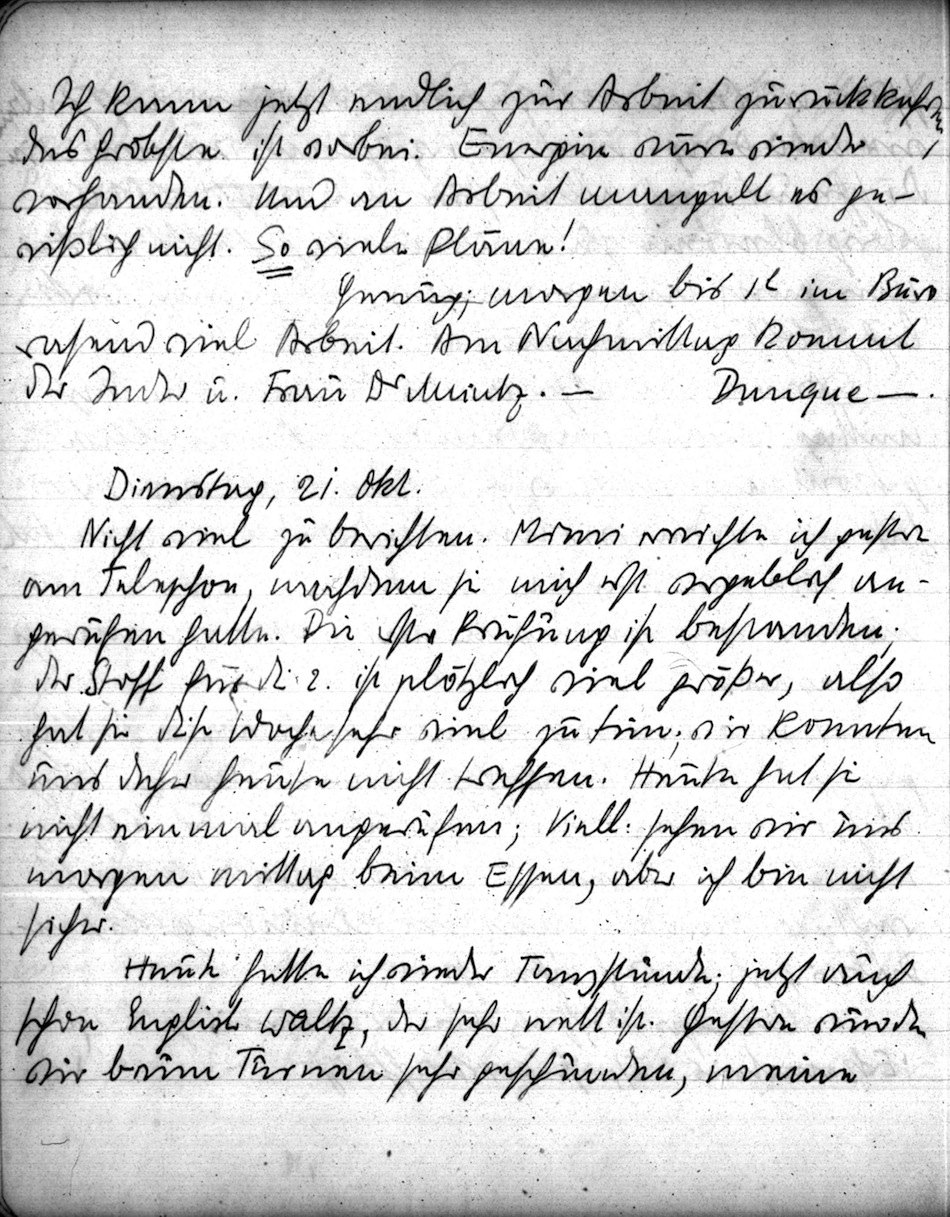 Ich kann jetzt endlich zur Arbeit zurückkehren,
das Gröbste ist vorbei. Energie wäre wieder
vorhanden. Und an Arbeit mangelt es ge-
wißlich nicht. So viele Pläne!
Genug; morgen bis 1h im Büro
rasend viel Arbeit. Am Nachmittag kommt
der Inder u. Frau Dr Mintz. — Dunque —.
Dienstag, 21. Okt.
Nicht viel zu berichten. Mimi erreichte ich gestern
am Telephon, nachdem sie mich erst vergeblich an-
gerufen hatte. Die erste Prüfung ist bestanden;
der Stoff für die 2. ist plötzlich viel größer, also
hat sie diese Woche sehr viel zu tun; wir konnten
uns daher heute nicht treffen. Heute hat sie
nicht einmal angerufen; Viell. sehen wir uns
morgen mittag beim Essen, aber ich bin nicht
sicher.
Heute hatte ich wieder Tanzstunde; jetzt auch
schon English Waltz, der sehr nett ist. Gestern wurden
wir beim Turnen sehr geschunden, meine